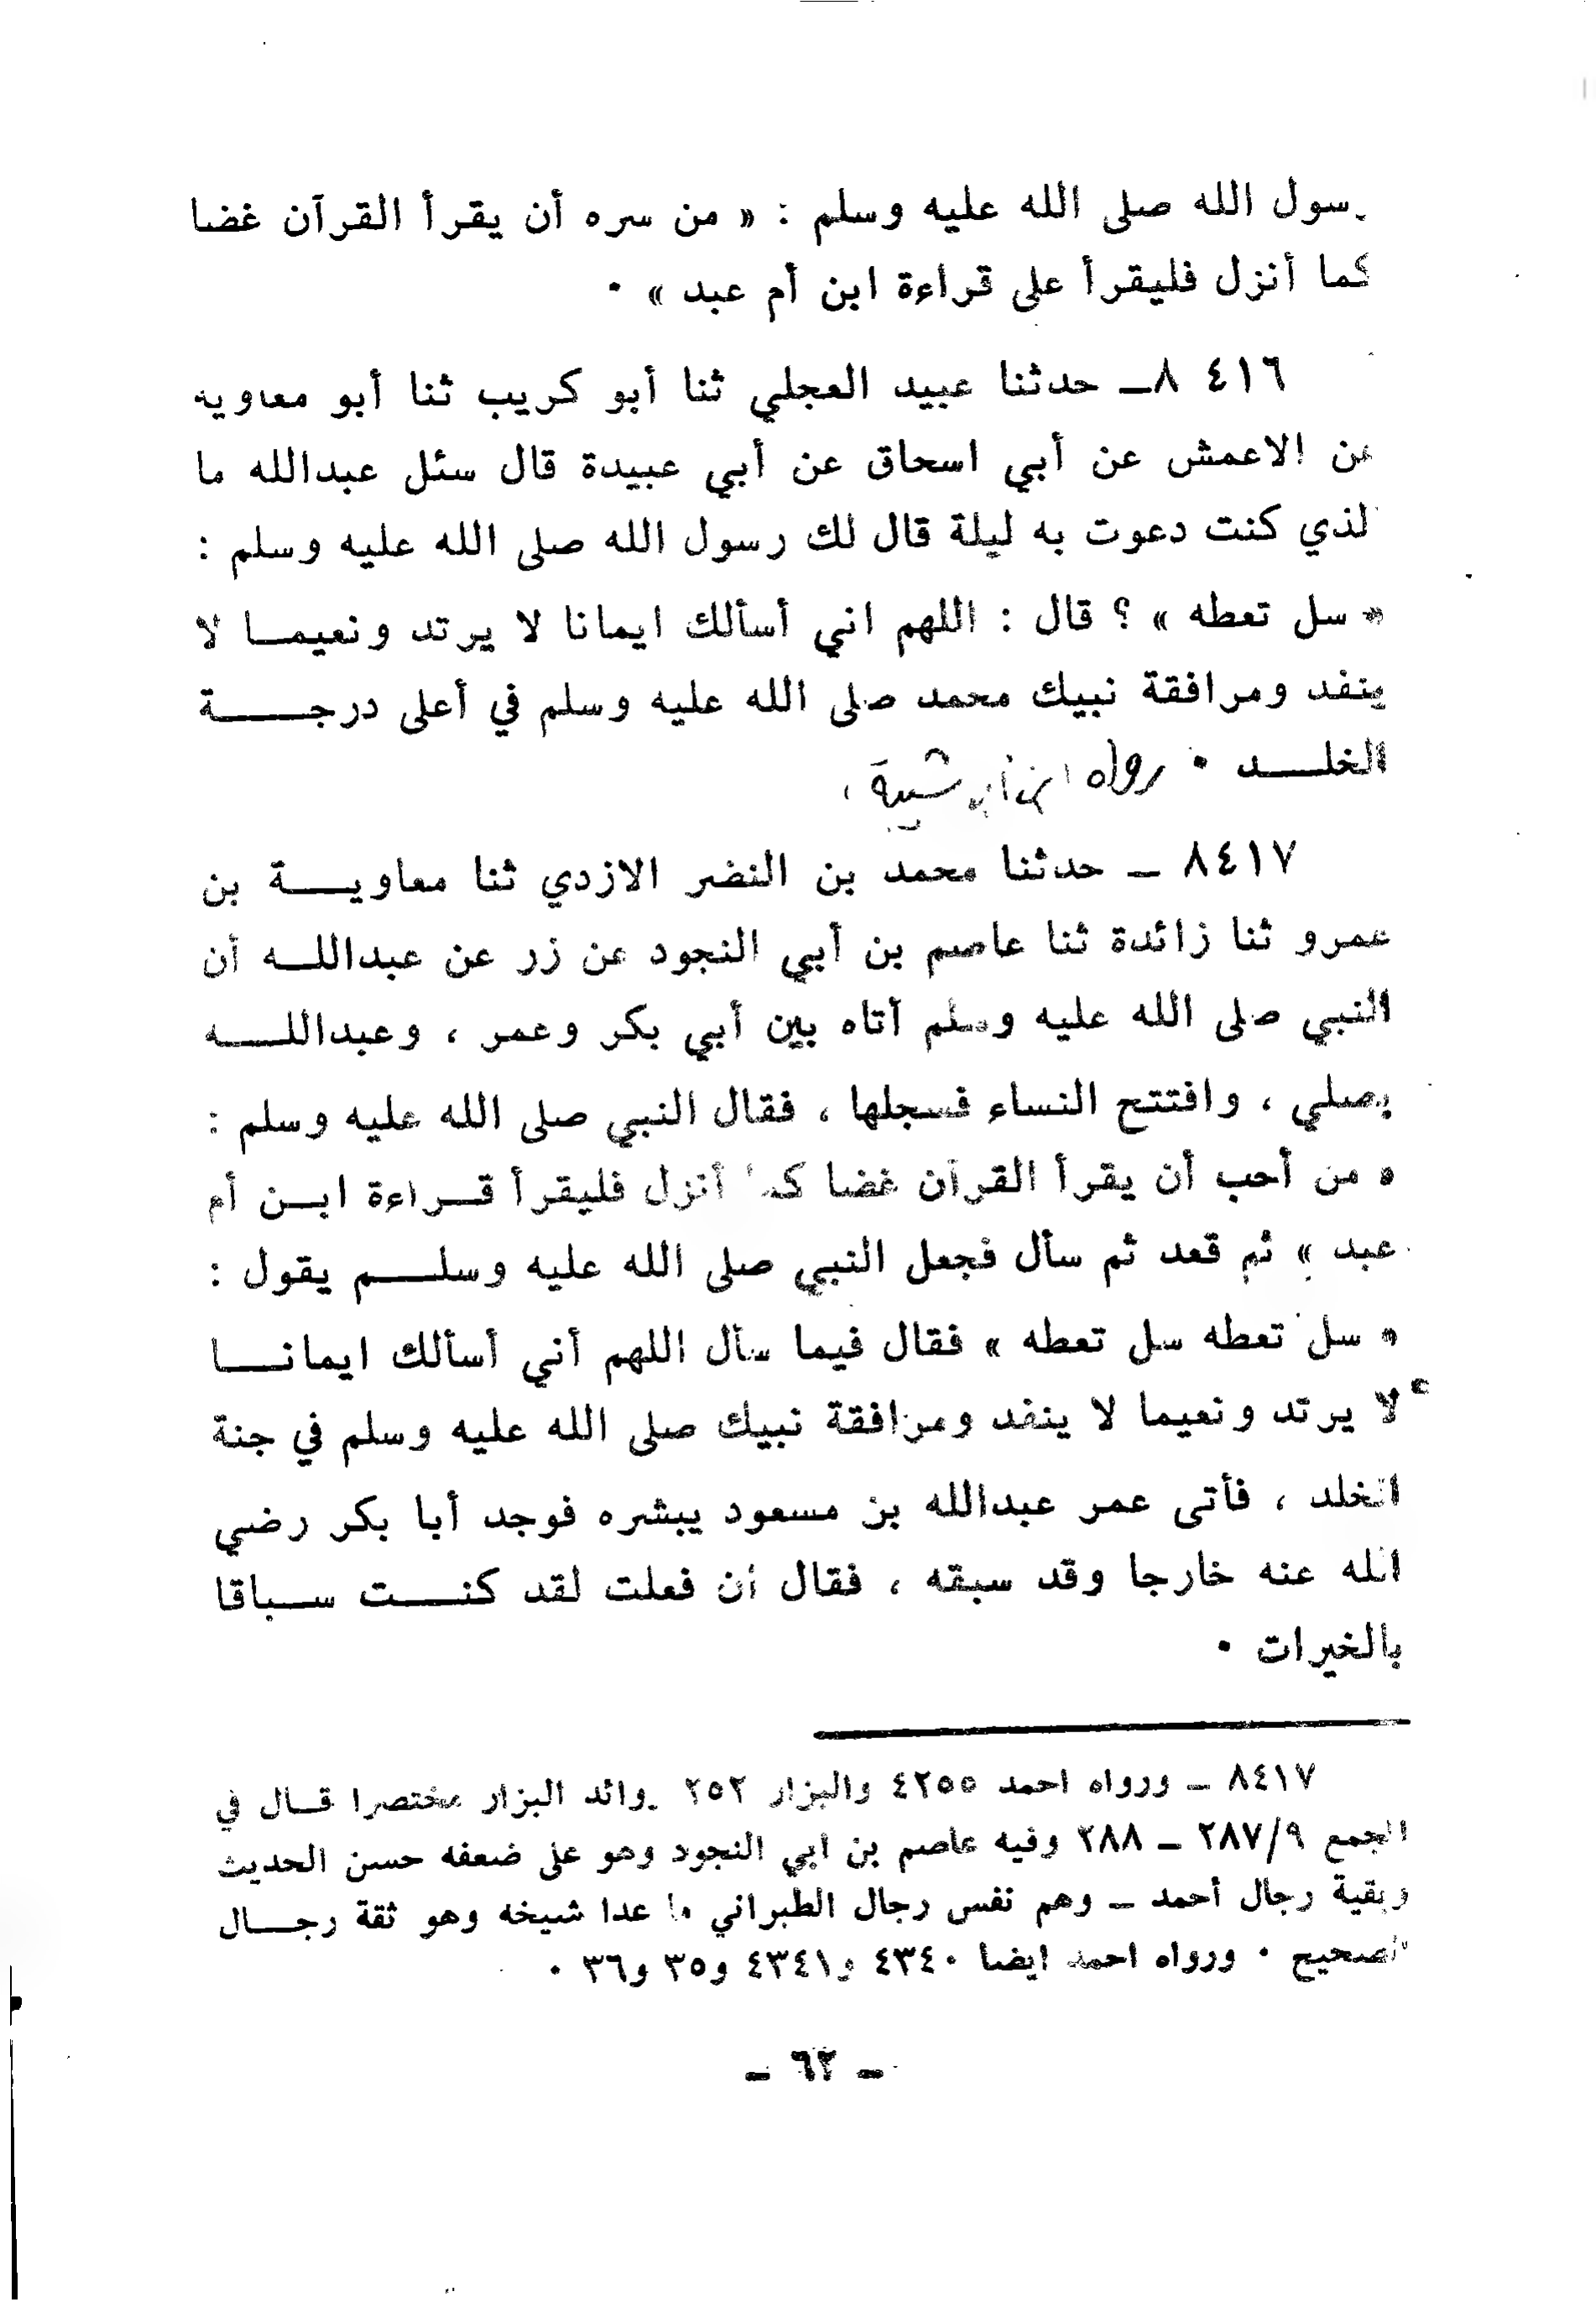 رسول الله صلى الله عليه وسلم : « من سره أن يقرأ القرآن غضا
كما أنزل فليقرأ على قراءة ابن أم عبد » ٠
٨٤١٦ ــ حدثنا عبيد العجلي ثنا أبو كريب ثنا أبو معاويه
عن الاعمش عن أبي اسحاق عن أبي عبيدة قال سئل عبدالله ما
لذي كنت دعوت به ليلة قال لك رسول الله صلى الله عليه وسلم :
« سل تعطه » ؟ قال : اللهم اني أسألك ايمانا لا يرتد ونعيمــا لا
ينفد ومرافقة نبيك محمد صلى الله عليه وسلم في أعلى درجـــــة
الخلــــد ٠ رواه ابن أبي شيبة
٨٤١٧ ــ حدثنا محمد بن النضر الازدي ثنا معاويـــة بن
عمرو ثنا زائدة ثنا عاصم بن أبي النجود عن زر عن عبداللــه أن
النبي صلى الله عليه وسلم أتاه بين أبي بكر وعمر ، وعبداللـــــه
يصلي ، وافتتح النساء فسجلها ، فقال النبي صلى الله عليه وسلم :
« من أحب أن يقرأ القرآن غضا كما أنزل فليقرأ قــراءة ابــن أم
عبد » ثم قعد ثم سأل فجعل النبي صلى الله عليه وسلــــم يقول :
« سل تعطه سل تعطه » فقال فيما سأل اللهم أني أسألك ايمانــــا
لا يرتد ونعيما لا ينفد ومرافقة نبيك صلى الله عليه وسلم في جنة
الخلد ، فأتى عمر عبدالله بن مسعود يبشره فوجد أبا بكر رضي
الله عنه خارجا وقد سبقه ، فقال أن فعلت لقد كنـــــت ســباقا
بالخيرات ٠
٨٤١٧ ــ ورواه احمد ٤٢٥٥ والبزار ٢٥٢ زوائد البزار مختصرا قــال في
المجمع ٢٨٧/٩ ــ ٢٨٨ وفيه عاصم بن ابي النجود وهو على ضعفه حسن الحديث
وبقية رجال أحمد ــ وهم نفس رجال الطبراني ما عدا شيخه وهو ثقة رجــــال
الصحيح ٠ ورواه احمد ايضا ٤٣٤٠ و٤٣٤١ و٣٥ و٣٦ ٠
ــ ٦٢ ــ